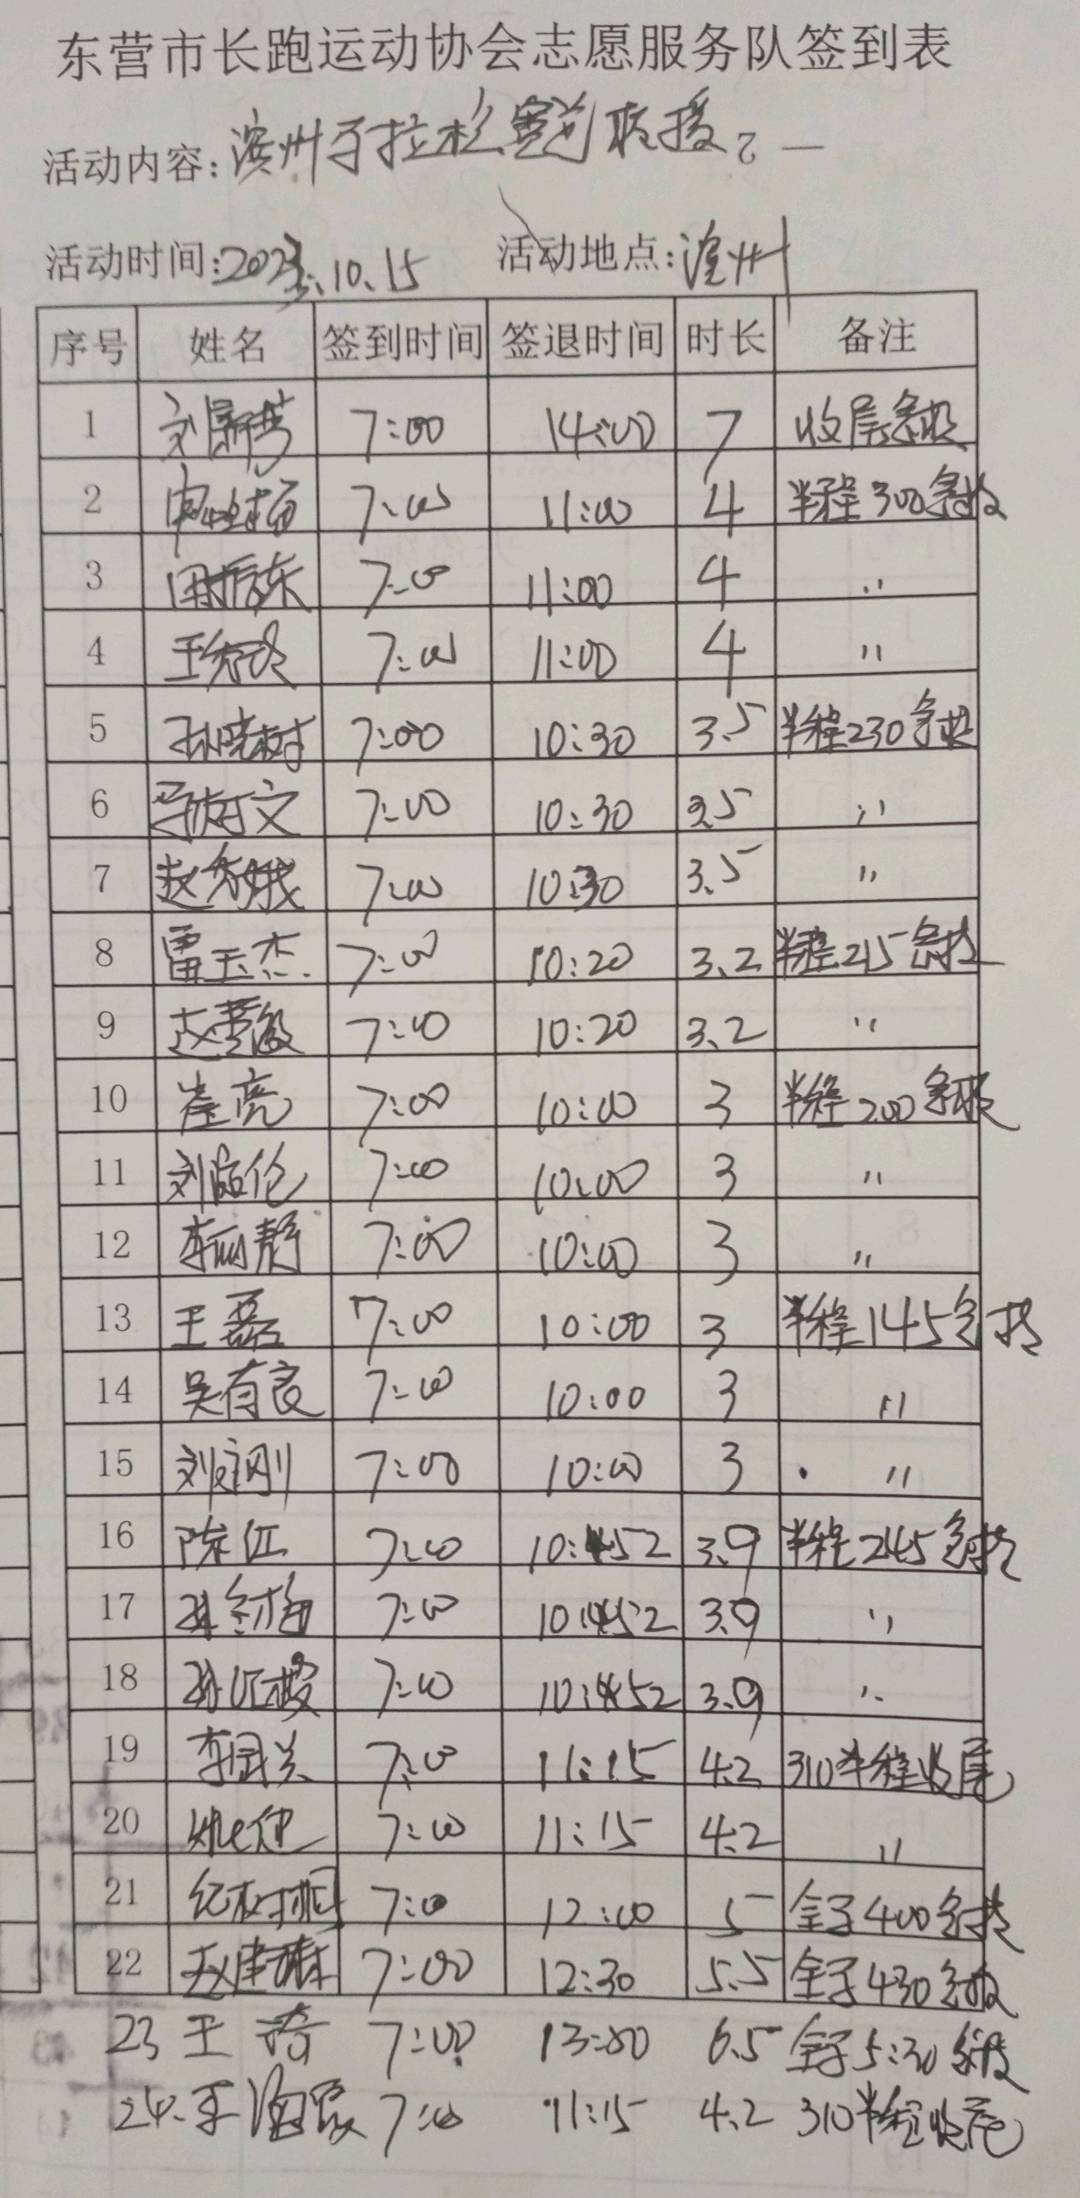 东营市长跑运动协会志愿服务队签到表
活动内容:滨州马拉松赛前救援
活动时间:2023.10.15 活动地点:滨州
序号 姓名 签到时间 签退时间 时长 备注
1 7:00 14:00 7 收尾急救
2 7:00 11:00 4 半程300急救
3 周振东 7:00 11:00 4 〃
4 7:00 11:00 4 〃
5 孙晓树 7:00 10:30 3.5 半程230急救
6 马树文 7:00 10:30 3.5 〃
7 赵秀娥 7:00 10:30 3.5 〃
8 雷玉杰 7:00 10:20 3.2 半程215急救
9 7:00 10:20 3.2 〃
10 崔亮 7:00 10:00 3 半程200急救
11 7:00 10:00 3 〃
12 李丽静 7:00 10:00 3 〃
13 王磊 7:00 10:00 3 半程145急救
14 吴有良 7:00 10:00 3 〃
15 7:00 10:00 3 〃
16 陈红 7:00 3.9 半程245急救
17 孙金梅 7:00 3.9 〃
18 7:00 3.9 〃
19 李国兰 7:00 11:15 4.2 310半程收尾
20 7:00 11:15 4.2 〃
21 7:00 12:00 5 全马400急救
22 7:00 12:30 5.5 全马430急救
23 王琦 7:00 6.5 全马5:30急救
24. 王海霞 7:00 11:15 4.2 310半程收尾